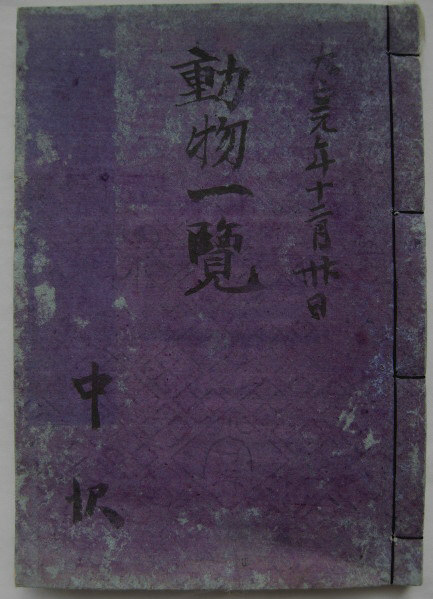 大正元年十二月日
動物一覽
中沢